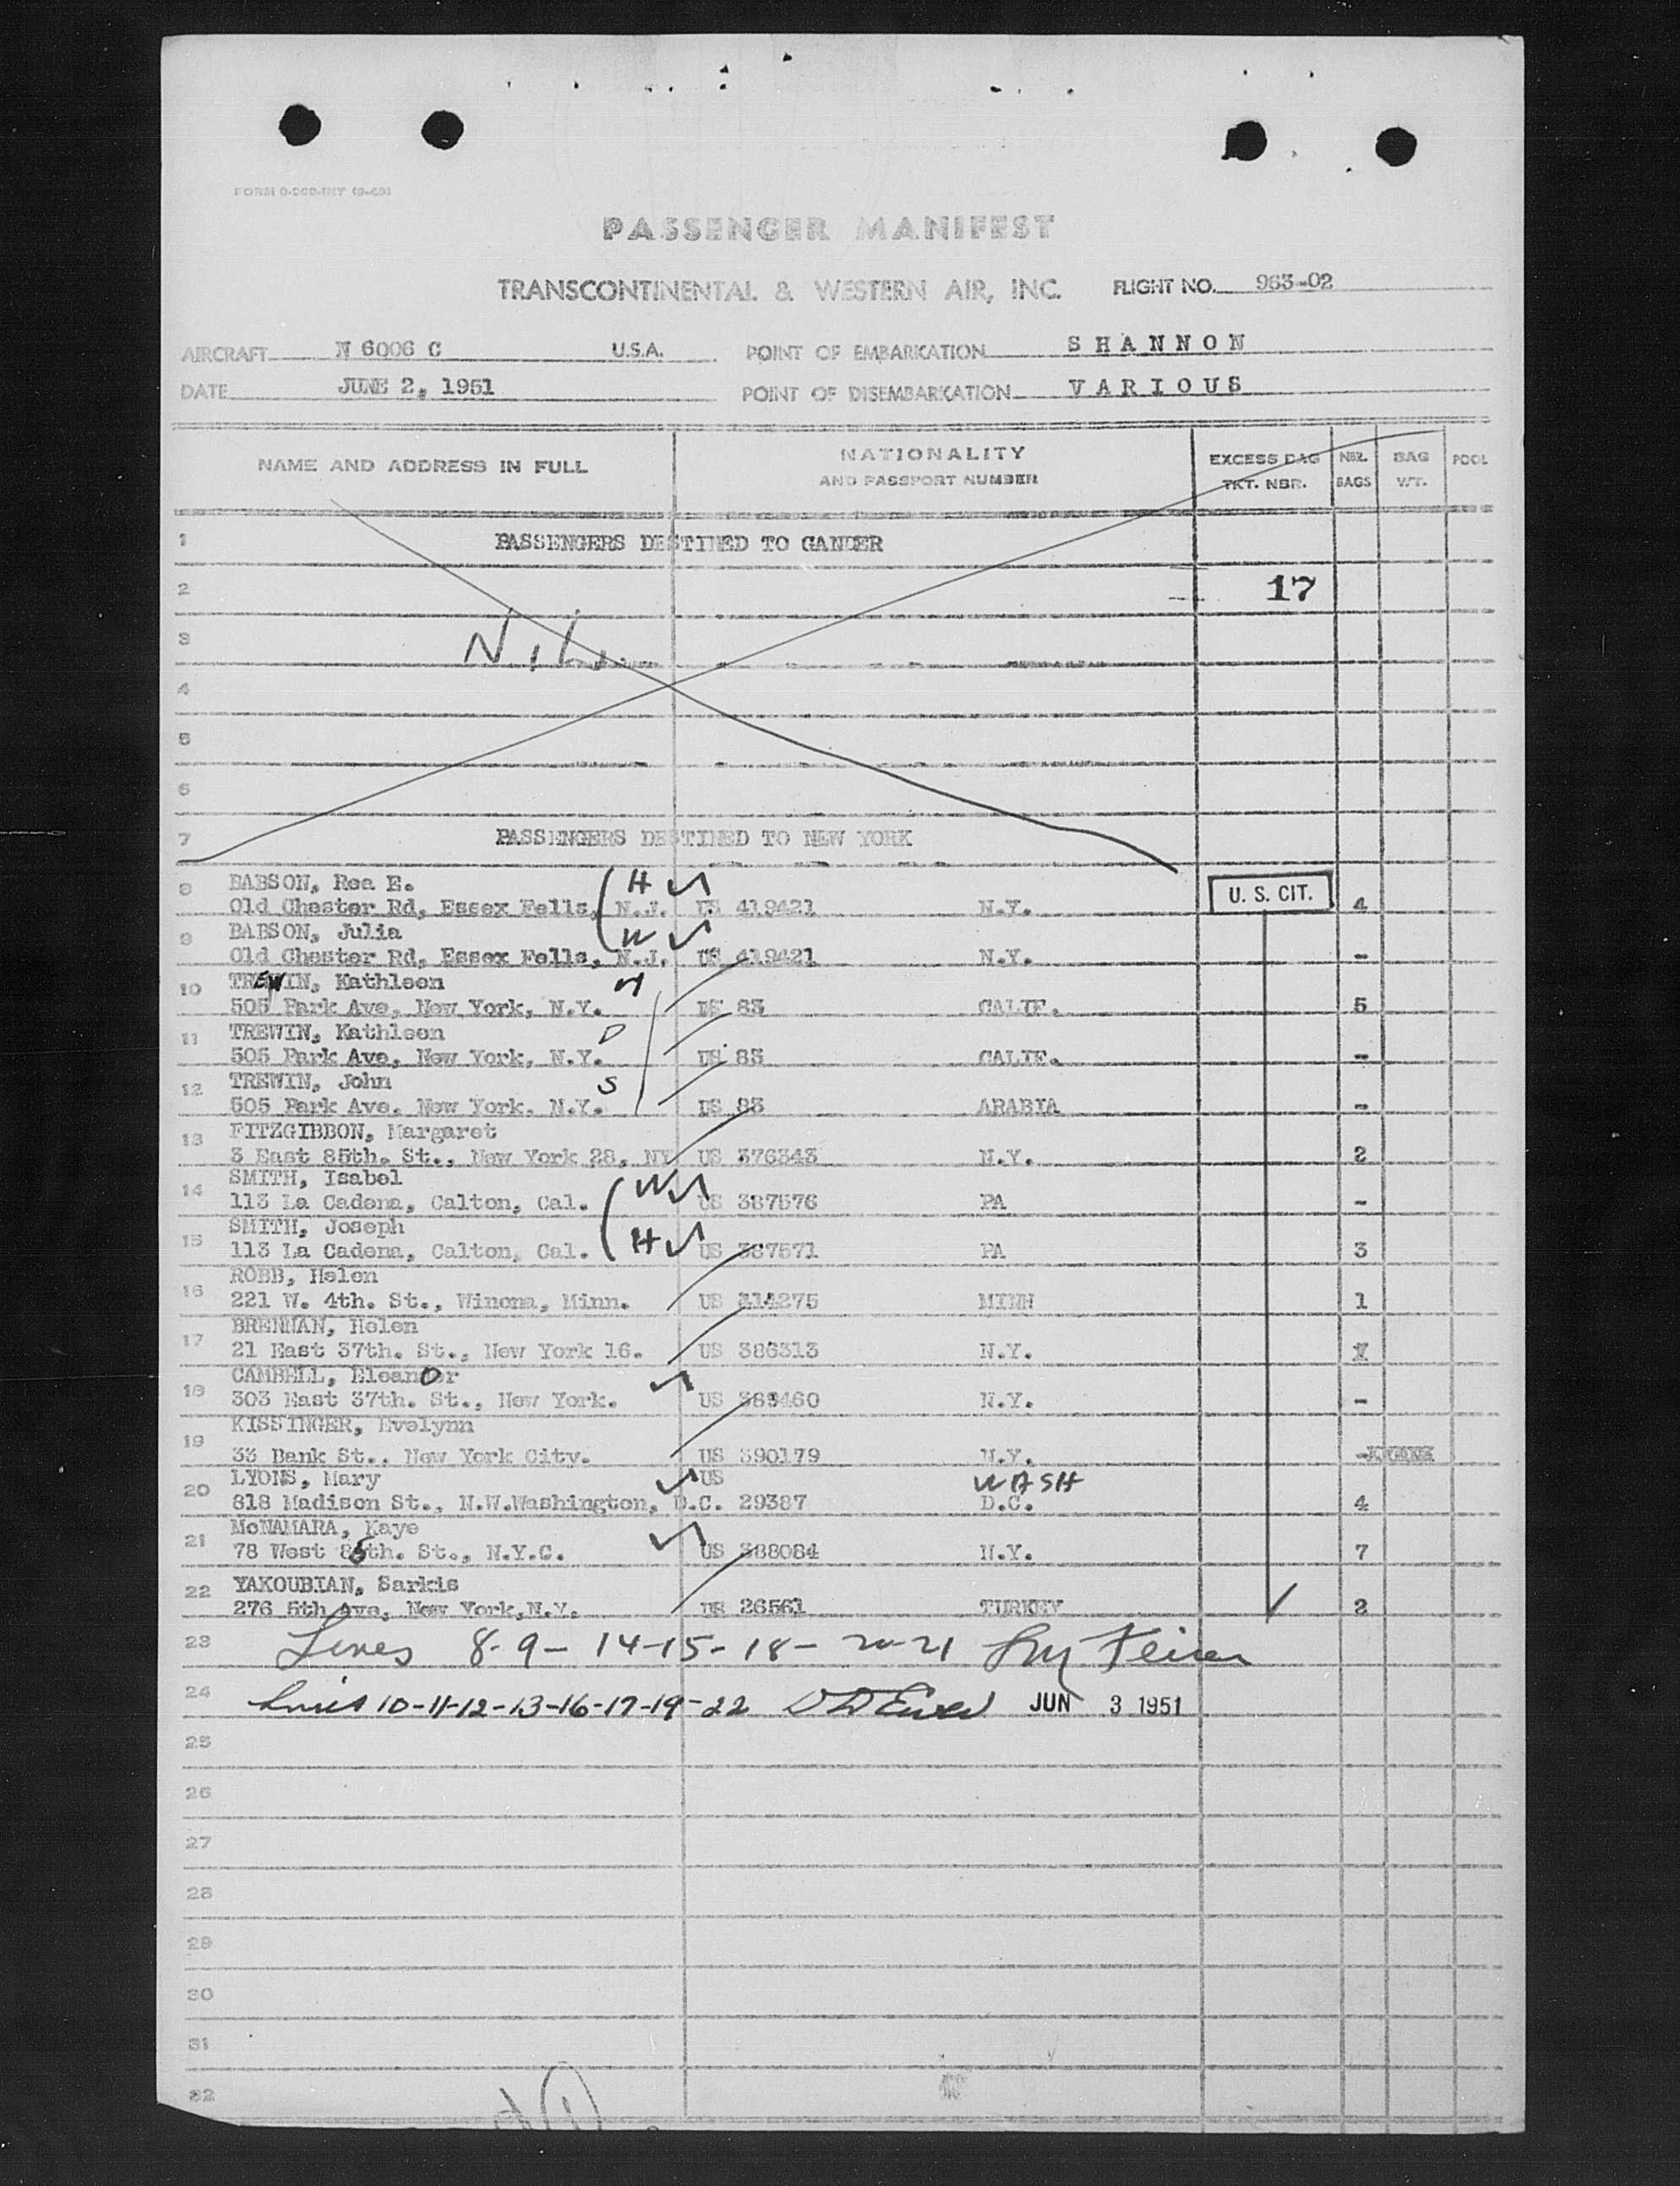 FORM
PASSENGER MANIFEST
TRANSCONTINENTAL & WESTERN AIR, INC. FLIGHT NO. 963-02
AIRCRAFT N 6006 C U.S.A. POINT OF EMBARKATION SHANNON
DATE JUNE 2, 1951 POINT OF DISEMBARKATION VARIOUS
NAME AND ADDRESS IN FULL NATIONALITY AND PASSPORT NUMBER EXCESS BAG TKT. NBR. NBR. BAGS BAG WT. POOL
1 PASSENGERS DESTINED TO GANDER
2 17
3 Nil.
4
5
6
7 PASSENGERS DESTINED TO NEW YORK
8 BABSON, Rea E. H U. S. CIT.
Old Chester Rd, Essex Fells, N.J. US 419421 N.Y. 4
9 BABSON, Julia W
Old Chester Rd, Essex Fells, N.J. US 419421 N.Y. -
10 TREWIN, Kathleen M
505 Park Ave, New York, N.Y. US 83 CALIF. 5
11 TREWIN, Kathleen D
505 Park Ave, New York, N.Y. US 83 CALIF. -
12 TREWIN, John S
505 Park Ave. New York. N.Y. US 83 ARABIA -
13 FITZGIBBON, Margaret
3 East 85th. St., New York 28, NY US 376343 N.Y. 2
14 SMITH, Isabel W
113 La Cadena, Calton, Cal. US 387576 PA -
15 SMITH, Joseph
113 La Cadena, Calton, Cal. H US 387571 PA 3
16 ROBB, Helen
221 W. 4th. St., Winona, Minn. US 414275 MINN 1
17 BRENNAN, Helen
21 East 37th. St., New York 16. US 386313 N.Y.
18 CAMBELL, Eleanor
303 East 37th. St., New York. US 389460 N.Y. -
19 KISSINGER, Evelynn
33 Bank St., New York City. US 390179 N.Y. -
20 LYONS, Mary US WASH
818 Madison St., N.W.Washington, D.C. 29387 D.C. 4
21 McNAMARA, Kaye
78 West 85th. St., N.Y.C. US 388084 N.Y. 7
22 YAKOUBIAN, Sarkis
276 5th Ave, New York, N.Y. US 26561 TURKEY 2
23 Lines 8-9-14-15-18-20-21
24 Lines 10-11-12-13-16-17-19-22 JUN 3 1951
25
26
27
28
29
30
31
32